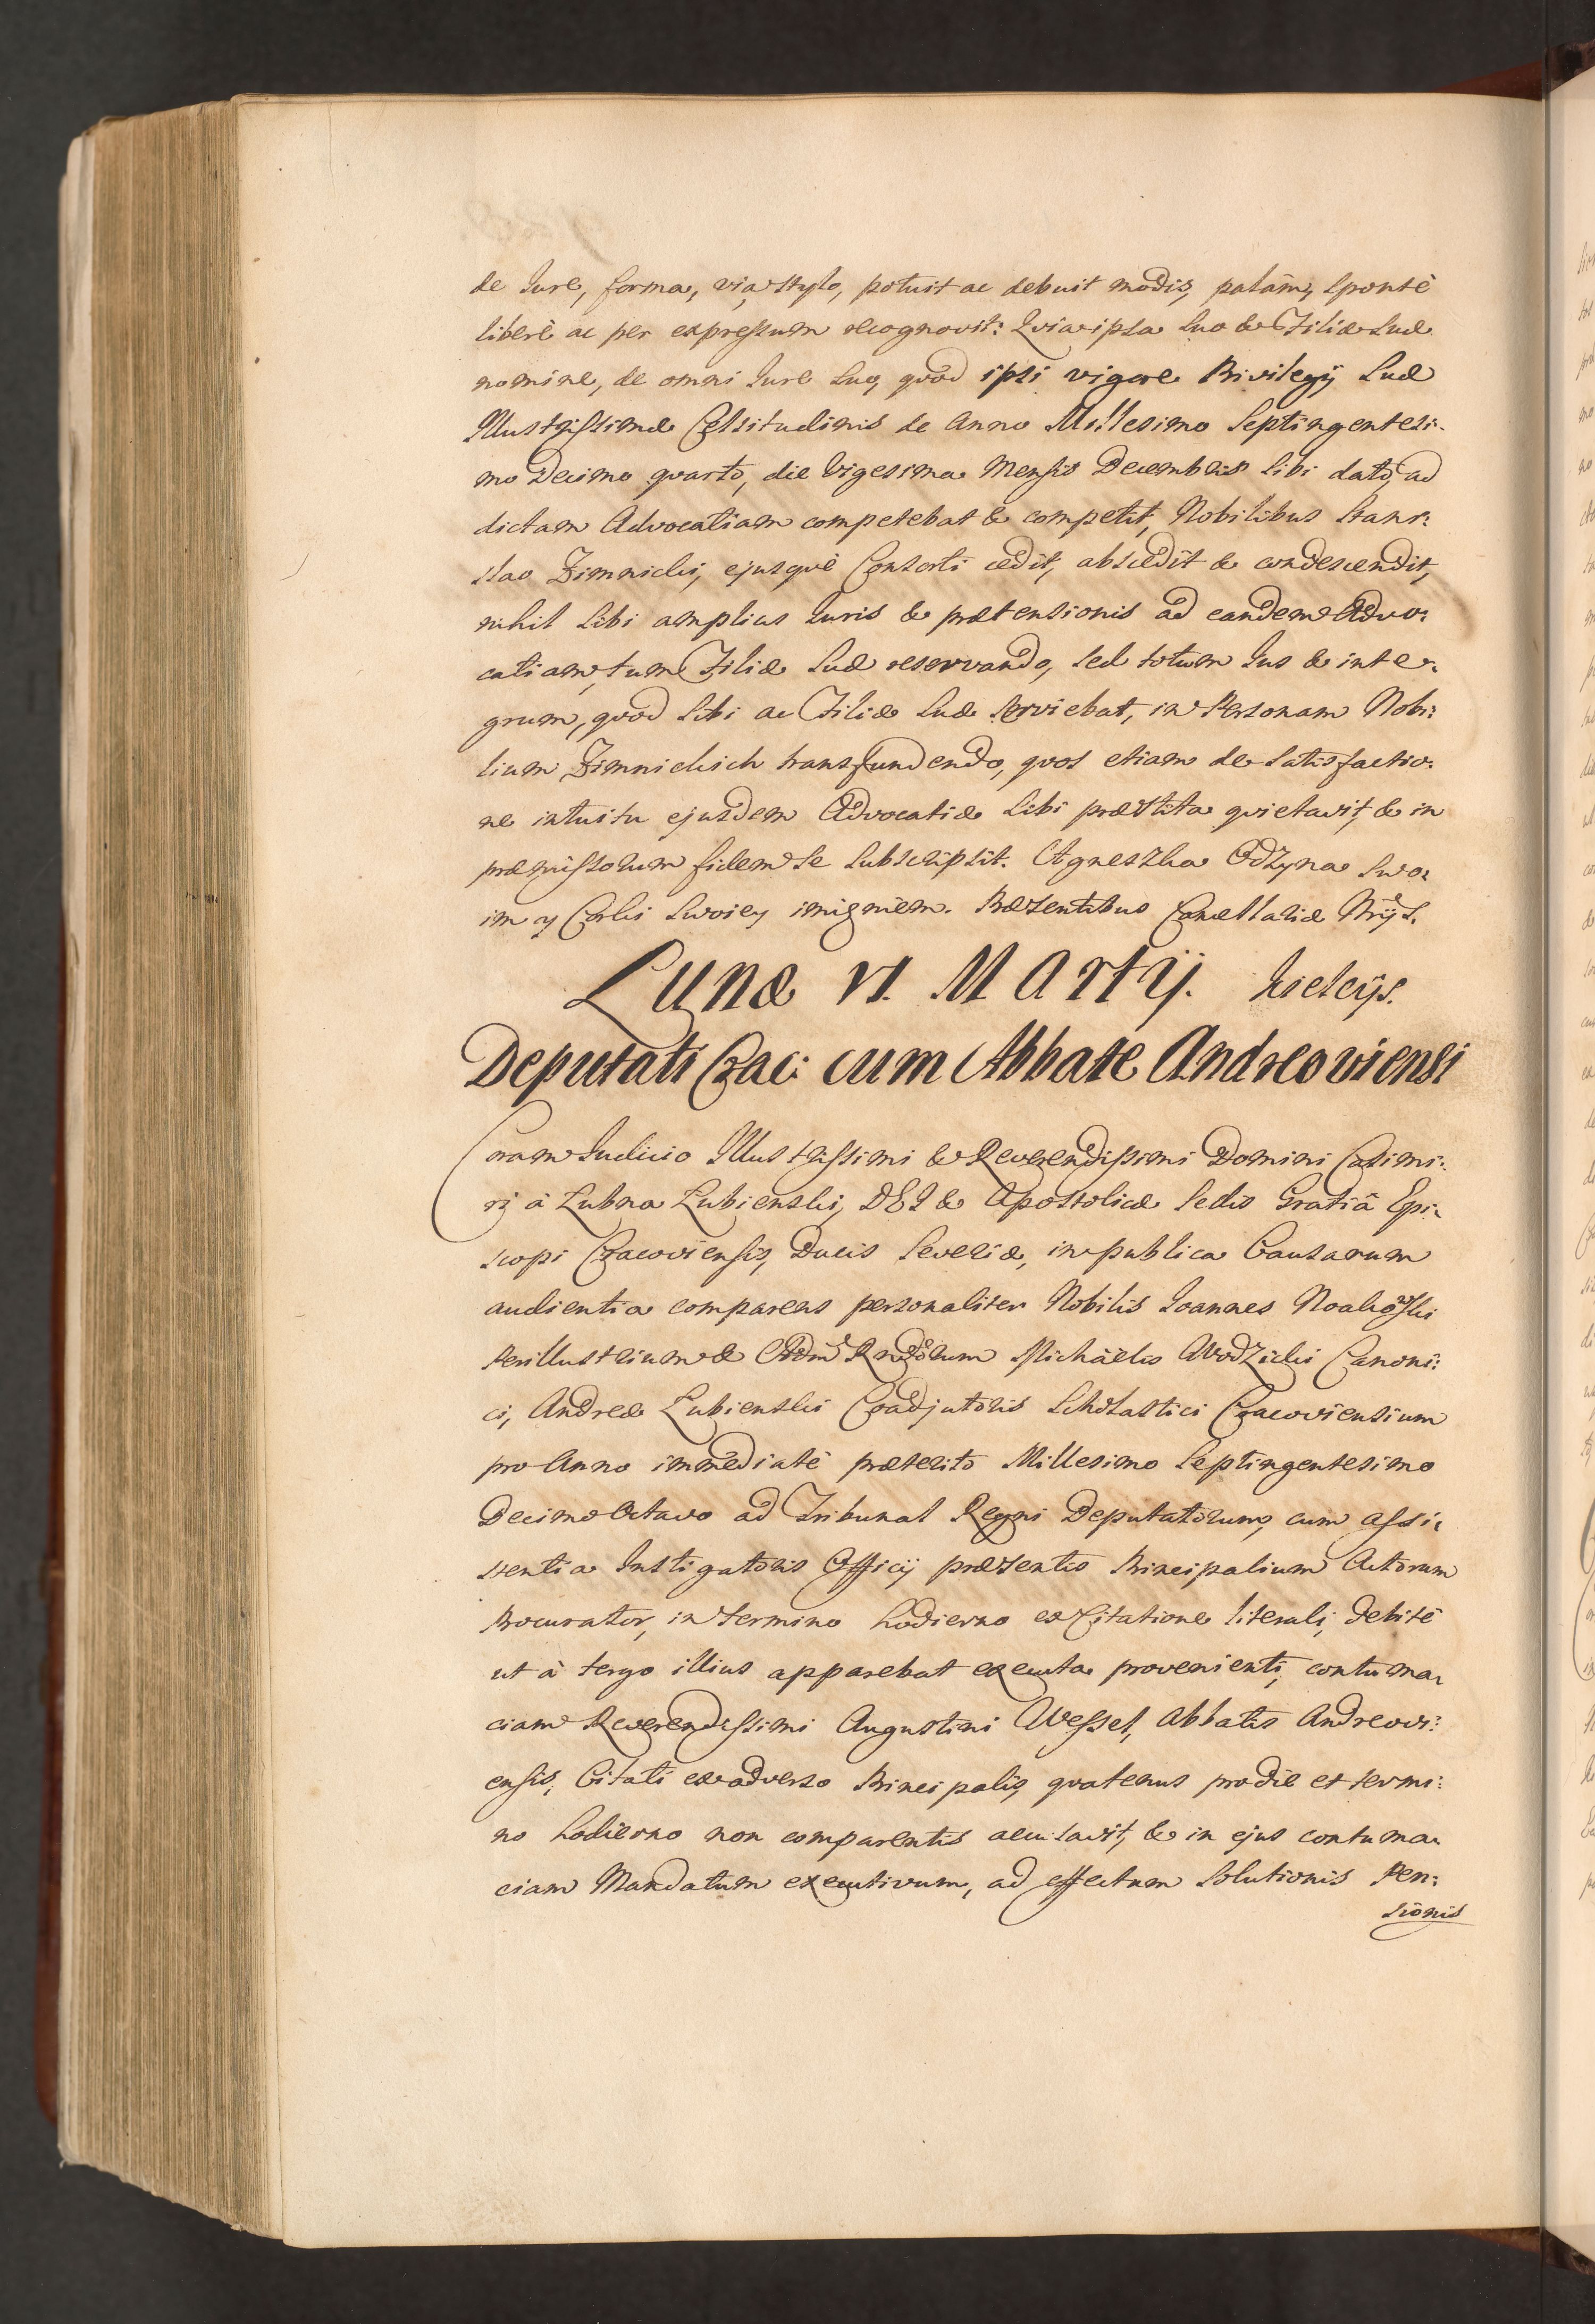 de Jure, forma, via, stylo, potuit ac debuit modis, palàm, spontè
liberè ac per expressum recognovit: Quia ipsa suo & Filiæ suæ
nomine, de omni Jure suo, quod ipsi vigore Privilegij Suæ
Illustrissimæ Celsitudinis de Anno Millesimo Septingentesi-
mo Decimo quarto, die Vigesima Mensis Decembris sibi dato, ad
dictam Advocatiam competebat & competit, Nobilibus Stani:
slao Zimnicki, ejusquè Consorti cedit, abscedit & condescendit,
nihil sibi amplius Juris & prætensionis ad eandem Advo:
catiam, tum Filiæ suæ reservando, sed totum Jus & inte:
grum, quod sibi ac Filiæ suæ serviebat, in Personam Nobi:
lium Zimnickich transfundendo, quos etiam de satisfactio:
ne intuitu ejusdem Advocatiæ sibi præstita quietavit, & in
præmissorum fidem se subscripsit. Agneszka Odzyna swo:
im y Corki swoiey imięniem. Præsentibus Cancellariæ Nrijs.
Lunæ VI. Martij. Kielcijs.
Deputati Crac: cum Abbate Andreoviensi
Coram Judicio Illustrissimi & Reverendissimi Domini Casimi:
ri à Łubna Łubienski, DEI & Apostolicæ Sedis Gratiâ Epi:
scopi Cracoviensis, Ducis Severiæ, in publica Causarum
audientia comparens personaliter Nobilis Joannes Noakowski
Perillustrium & Adm Rndorum Michaëlis Wodzicki Canoni:
ci, Andreæ Łubienski Coadjutoris Scholastici Cracoviensium
pro Anno immediatè præterito Millesimo Septingentesimo
Decimo Octavo ad Tribunal Regni Deputatorum, cum assi:
stentia Instigatoris Officij præsentis Principalium Actorum
Procurator, in termino hodierno ex Citatione literali, debitè
ut à tergo illius apparebat executa provenienti, contuma:
ciam Reverendissimi Augustini Wessel, Abbatis Andreovi:
ensis, Citati ex adverso Principalis, quatenus pro die et termi:
no hodierno non comparentis accusavit, & in ejus contuma:
ciam Mandatum executivum, ad effectum solutionis Pen:
sionis